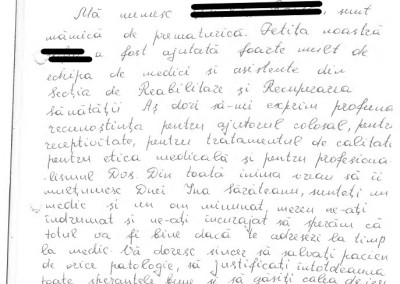 Mă numesc , sunt
mămică de prematurică. Fetița noastră
a fost ajutată foarte mult de
echipa de medici și asistente din
Secția de Reabilitare și Recuperarea
sănătății Aș dori să-mi exprim profunda
recunoștința pentru ajutorul colosal, pentru
receptivitate, pentru tratamentul de calitate
pentru etica medicală și pentru profesiona-
lismul Dvs. Din toată inima vreau să îi
mulțumesc Dnei Ina Sărăteanu, sunteți un
medic și un om minunat, mereu ne-ați
îndrumat și ne-ați încurajat să sperăm că
totul va fi bine dacă te adresezi la timp
la medic. Vă doresc sincer să salvați pacien
de orice patologie, să justificați întotdeauna
toate speranțele bune și să găsiți calea de